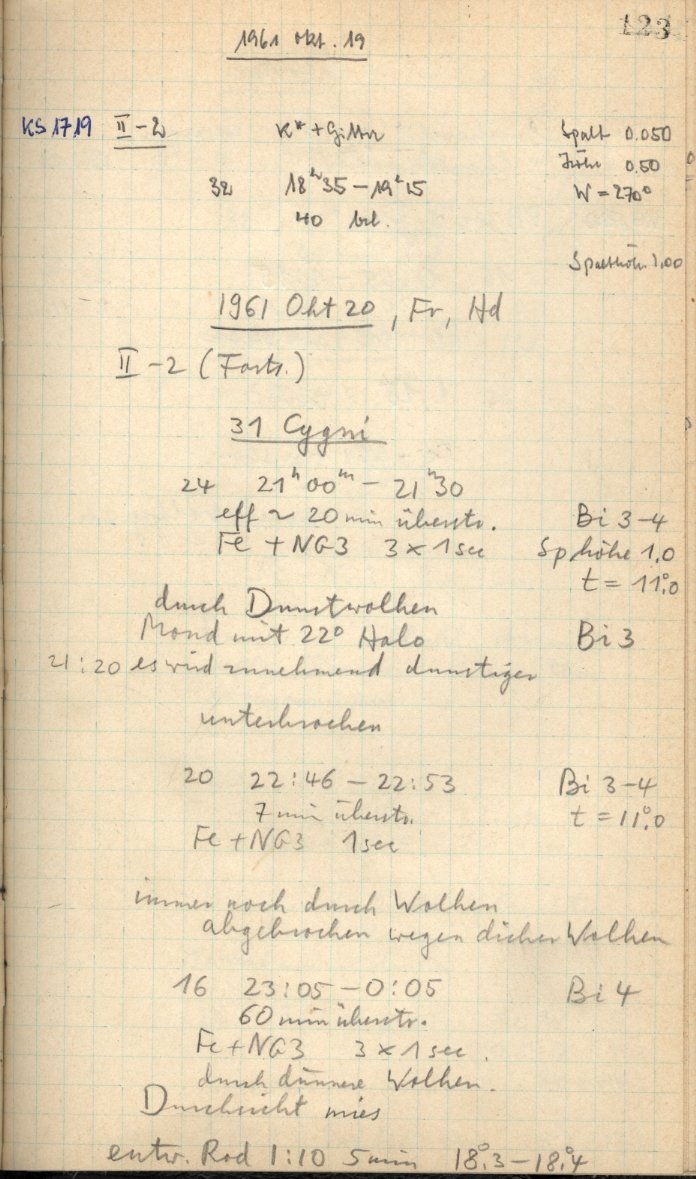 123
1961 Okt. 19
KS 1719 II-2 K* + Gitter Spalt 0.050
Höhe 0.50
32 18ʰ35 – 19ʰ15 W = 270°
40 bel.
Spalthöhe 1,00
1961 Okt 20, Fr, Hd
II-2 (Forts.)
31 Cygni
24 21ʰ00ᵐ – 21ʰ30
eff ~ 20 min überstr. Bi 3-4
Fe + NG3 3 × 1 sec Sp.höhe 1,0
t = 11°,0
durch Dunstwolken
Mond mit 22° Halo Bi 3
21:20 es wird zunehmend dunstiger
unterbrochen
20 22:46 – 22:53 Bi 3-4
7 min überstr. t = 11°,0
Fe + NG3 1 sec
immer noch durch Wolken
abgebrochen wegen dicker Wolken
16 23:05 – 0:05 Bi 4
60 min überstr.
Fe + NG3 3 × 1 sec.
durch dünnere Wolken.
Durchsicht mies
entw. Rod 1:10 5 min 18°,3 – 18°,4